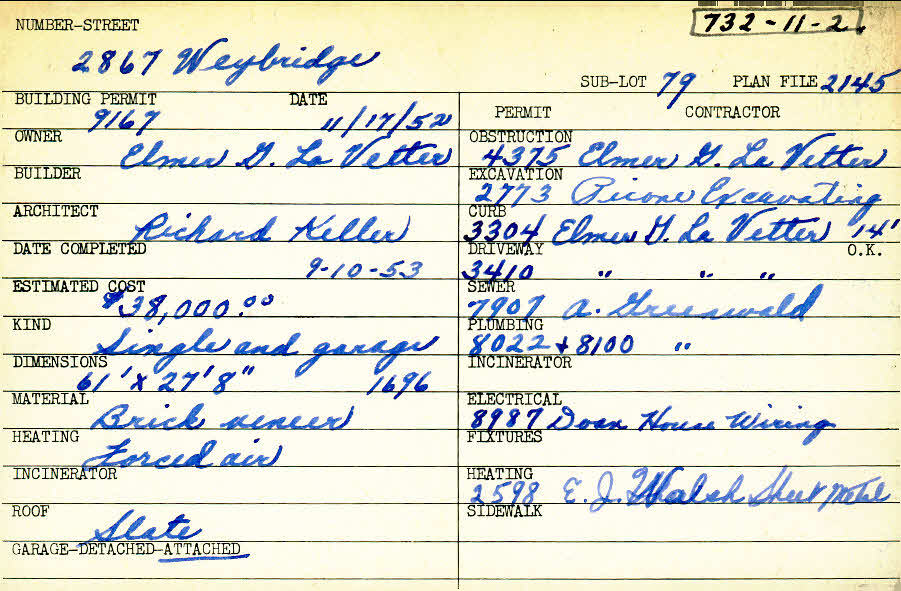 732-11-2
NUMBER-STREET
2867 Weybridge
SUB-LOT 79 PLAN FILE 2145
BUILDING PERMIT DATE
9167 11/17/52
OWNER
Elmer G. La Vetter
BUILDER
ARCHITECT
Richard Keller
DATE COMPLETED
9-10-53
ESTIMATED COST
$38,000.00
KIND
Single and garage
DIMENSIONS
61' x 27'8" 1696
MATERIAL
Brick veneer
HEATING
Forced air
INCINERATOR
ROOF
Slate
GARAGE-DETACHED-ATTACHED
PERMIT CONTRACTOR
OBSTRUCTION
4375 Elmer G. La Vetter
EXCAVATION
2773 Picone Excavating
CURB
3304 Elmer G. La Vetter 14'
DRIVEWAY O.K.
3410 " " "
SEWER
7907 A. Greenwald
PLUMBING
8022 + 8100 "
INCINERATOR
ELECTRICAL
8987 Doan House Wiring
FIXTURES
HEATING
2598 E. J. Walsh Sheet Metal
SIDEWALK